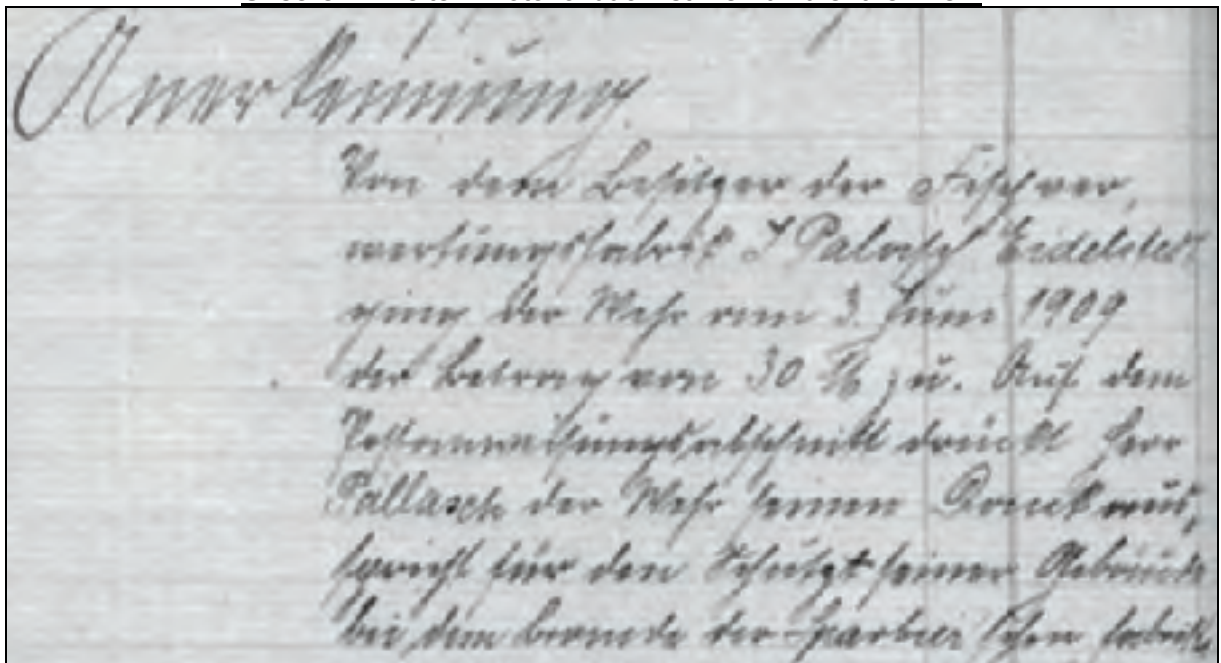 Anerkennung.
Von dem Besitzer der Fischver,
wertungsfabrik J Palasch Eidelstedt
ging der Wehr vom 3. Juni 1909
der Betrag von 30 M zu. Auf dem
Postanweisungsabschnitt drückt Herr
Pallasch der Wehr seinen Dank aus,
spricht für den Schutzt seiner Gebäude
bei dem brande der schen Fabrik